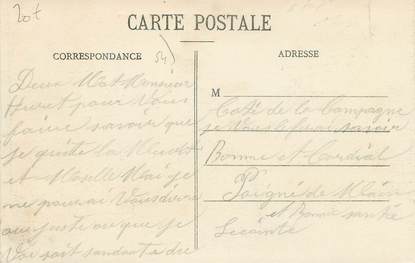 20t
CARTE POSTALE
CORRESPONDANCE
54)
ADRESSE
Deux Mot Monsieur
Huret pour Vous
faire savoir que
je quitte la
et Moselle Mai je
ne pourai Vous dire
au juste ou que je
Vai
M
Café de la Campagne
je Vous le ferai savoir
Bonne et Cordial
Poigné de Main
et Bonne santé
Lecointe